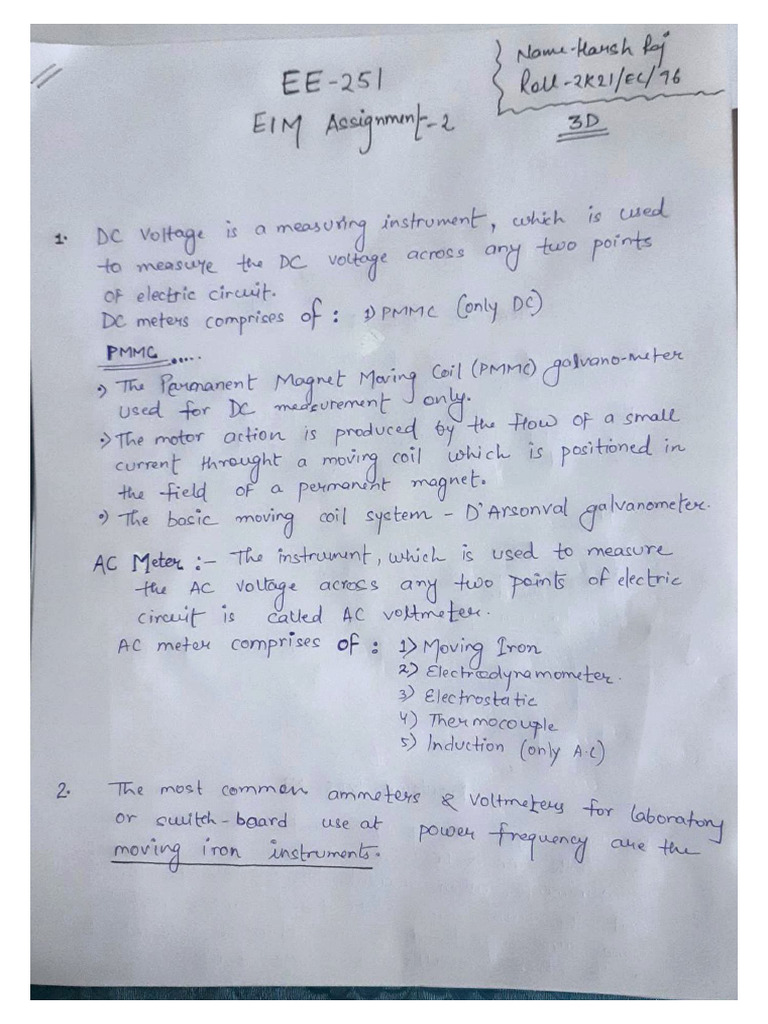 Name-Harsh Raj
EE-251
Roll-2K21/EC/76
EIM Assignment-2
3D
1. DC Voltage is a measuring instrument, which is used
to measure the DC voltage across any two points
of electric circuit.
DC meters comprises of : 1) PMMC (only DC)
PMMC .....
•) The Permanent Magnet Moving Coil (PMMC) galvano-meter
used for DC measurement only.
•) The motor action is produced by the flow of a small
current throught a moving coil which is positioned in
the field of a permanent magnet.
•) The basic moving coil system - D'Arsonval galvanometer.
AC Meter :- The instrument, which is used to measure
the AC voltage across any two points of electric
circuit is called AC voltmeter.
AC meter comprises of : 1) Moving Iron
2) Electrodynamometer.
3) Electrostatic
4) Thermocouple
5) Induction (only A.C)
2. The most common ammeters & voltmeters for laboratory
or switch-board use at power frequency are the
moving iron instruments.